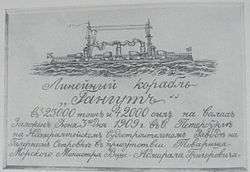 Линейный корабль
"Гангутъ"
въ 23000 тоннъ и 42000 силъ на валахъ
Заложенъ Іюня 3го дня 1909 г. въ С. Петербургѣ
на Адмиралтейскомъ Судостроительномъ Заводѣ на
Галерномъ Островкѣ въ присутствіи Товарища
Морского Министра Вице-Адмирала Григоровича